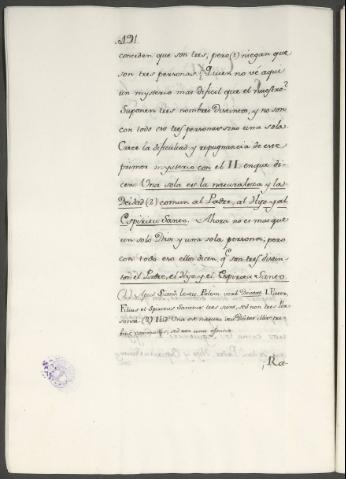 conceden que son tres, pero (1) niegan que
son tres personas. ¿Quien no vé aqui
un mysterio mas dificil que el nuestro?
Suponen tres nombres Divinos, y no son
con todo eso tres personas sino una sola.
Crece la dificultad y repugnancia de este
primer mysterio con el II. en que di-
cen: Una sola es la naturaleza y la
Deidad (2) comun al Padre, al Hijo y al
Espiritu Santo. Ahora no es mas que
un solo Dios y una sola persona, pero
con todo eso ellos dicen q.e son tres distin-
tos el Padre, el Hijo y el Espiritu Santo.
(1)
Filius et Spiritus Sanctus tres sunt, sed non tres Per-
sonæ. (2) Una est natura
sed non una
Ra-